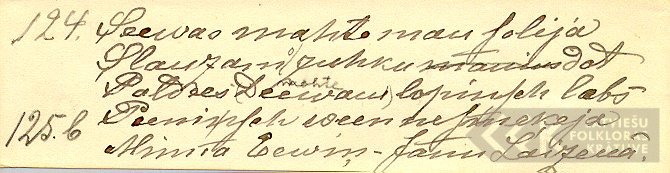 124. Seewas mahte man solija
Slauzamu zuhku dot
Paldees Deewam, mahte lopinsch labs
125.b Peeninsch ween ne smekeja.
Minna Eewiņ - Jaun Laizenā.
LATVIEŠU
FOLKLORAS
KRĀTUVE